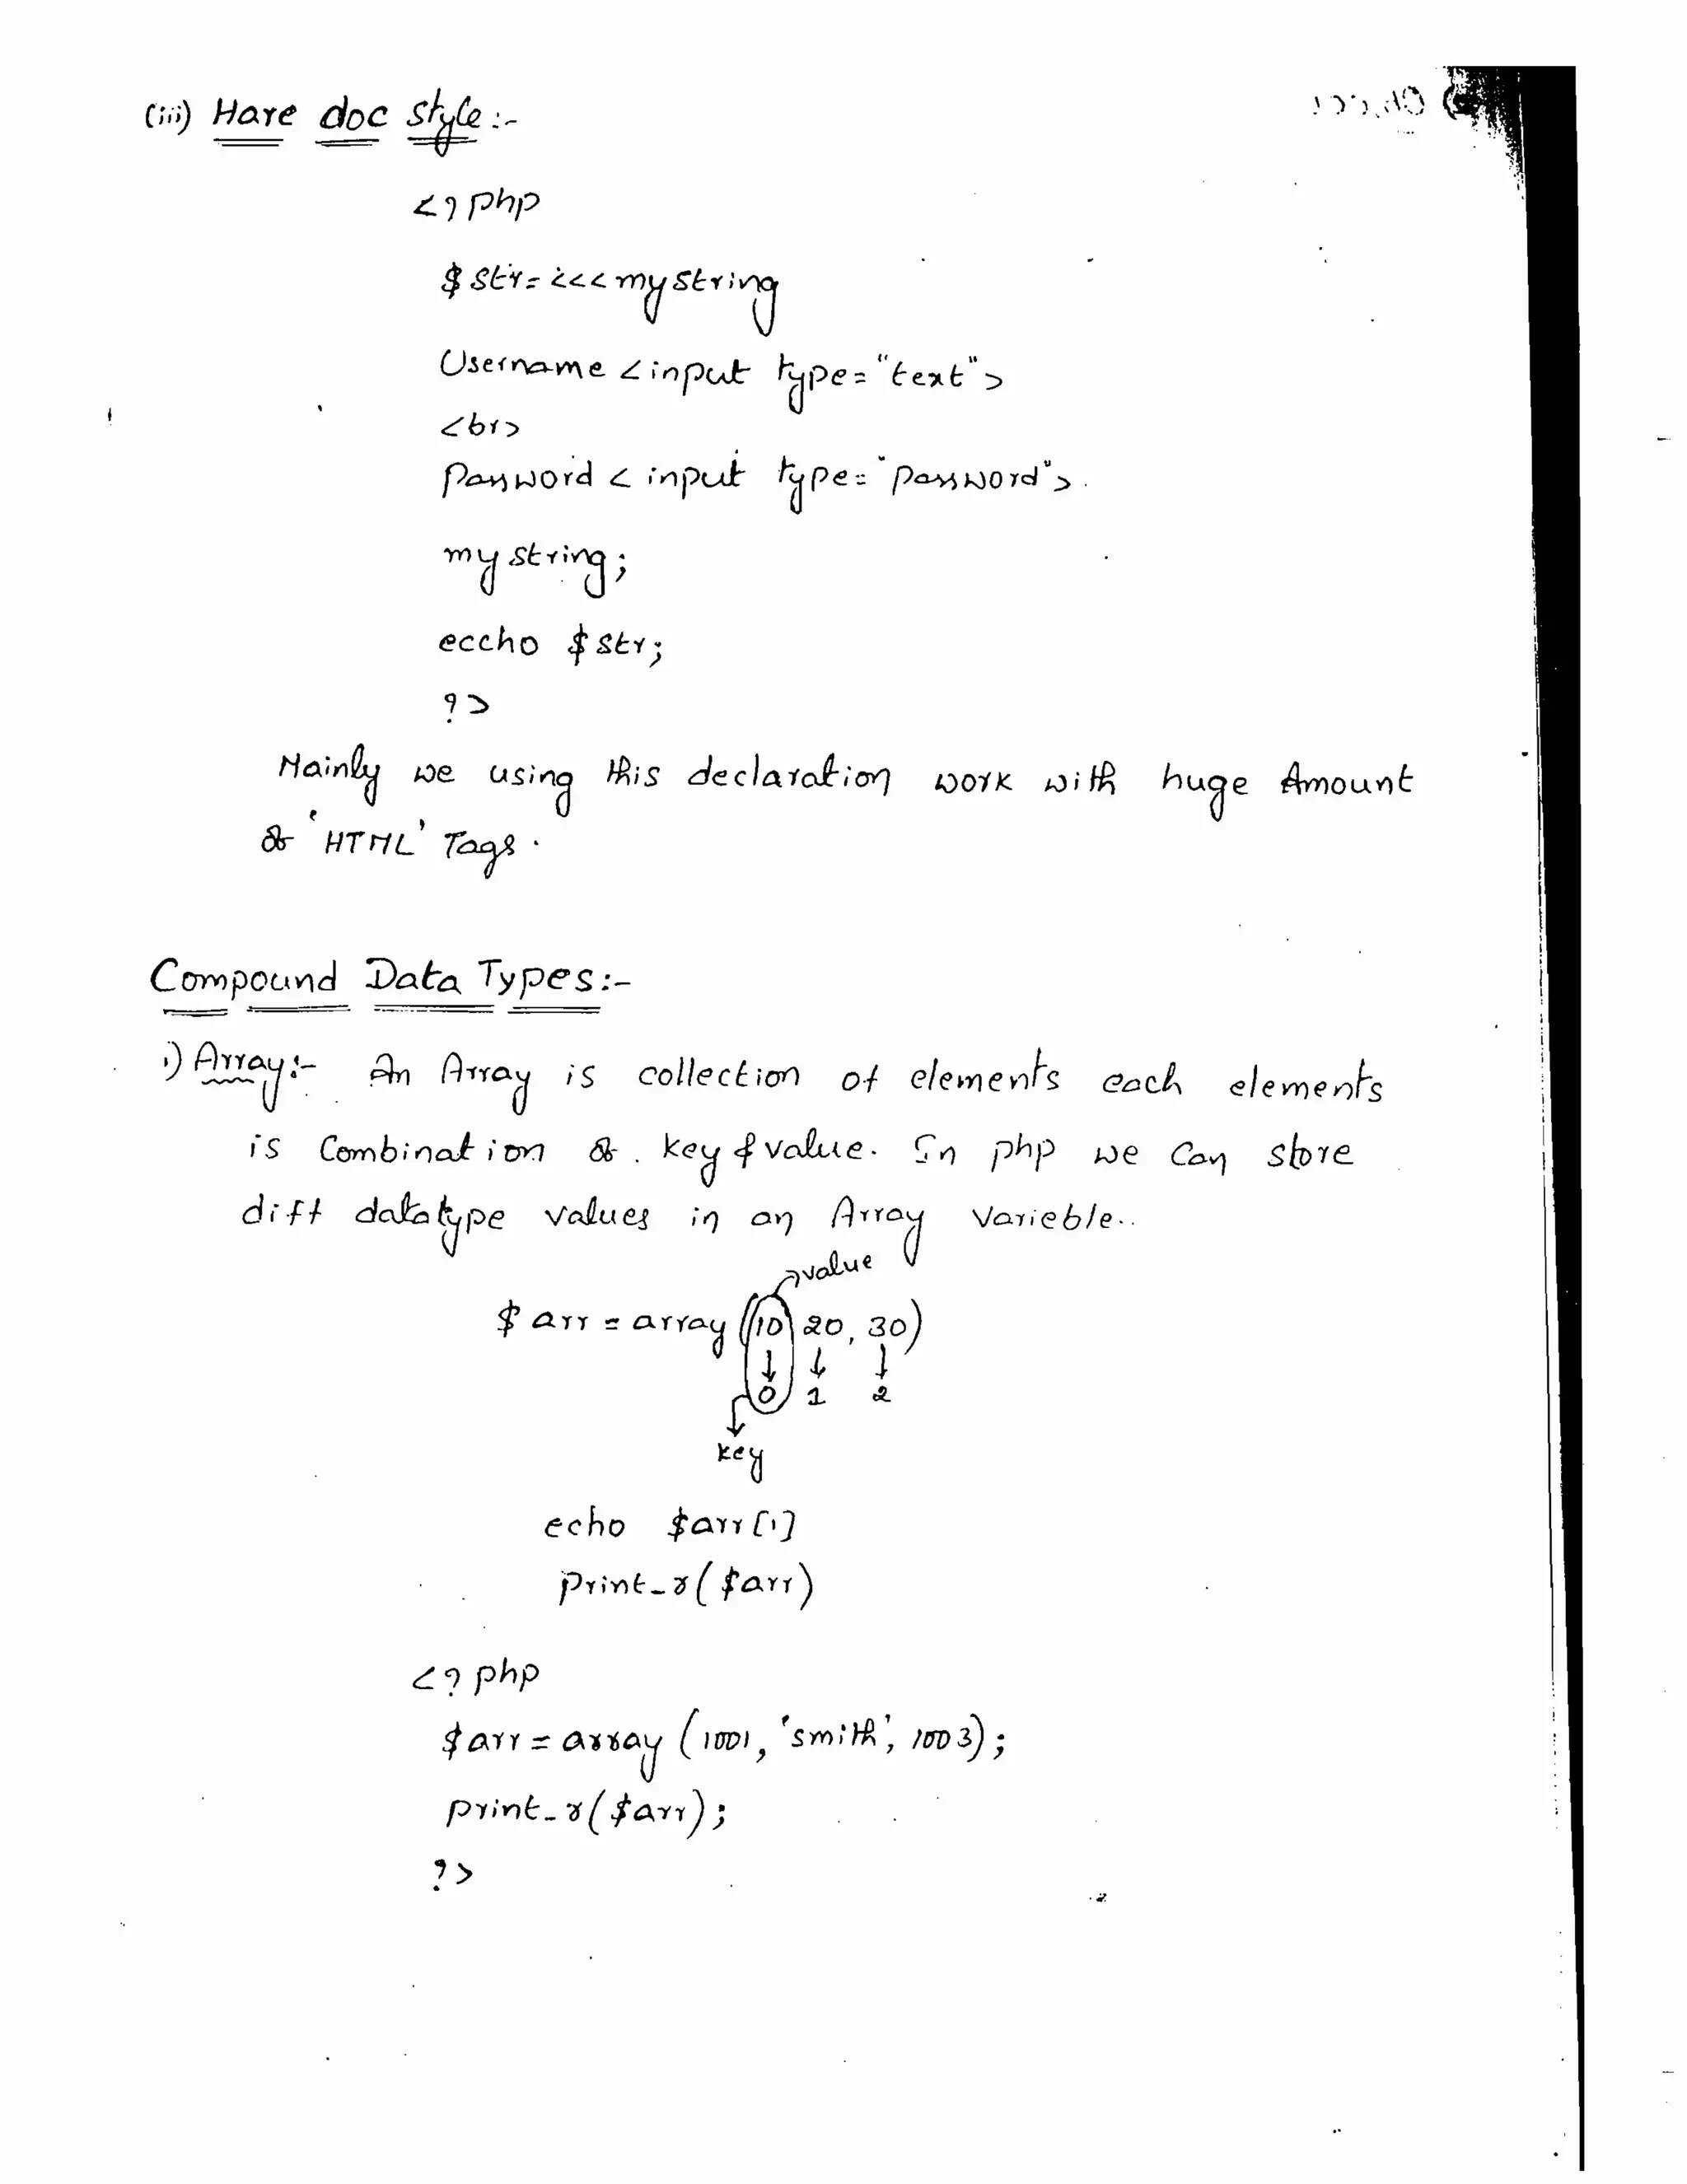 (iii) Hare doc style :-
<? php
$ str= <<< mystring
Username <input type="text">
<br>
Password < input type="password">.
mystring;
eccho $str;
?>
Mainly we using this declaration work with huge Amount
of 'HTML' Tags.
Compound Data Types:-
i) Array:- An Array is collection of elements each elements
is Combination of key & value. In php we can store
diff datatype values in an Array Varieble..
value
$ arr = array (10 20, 30)
0 1 2
key
echo $arr[1]
print_r($arr)
<? php
$arr = array (1001, 'smith', 1003);
print_r($arr);
?>